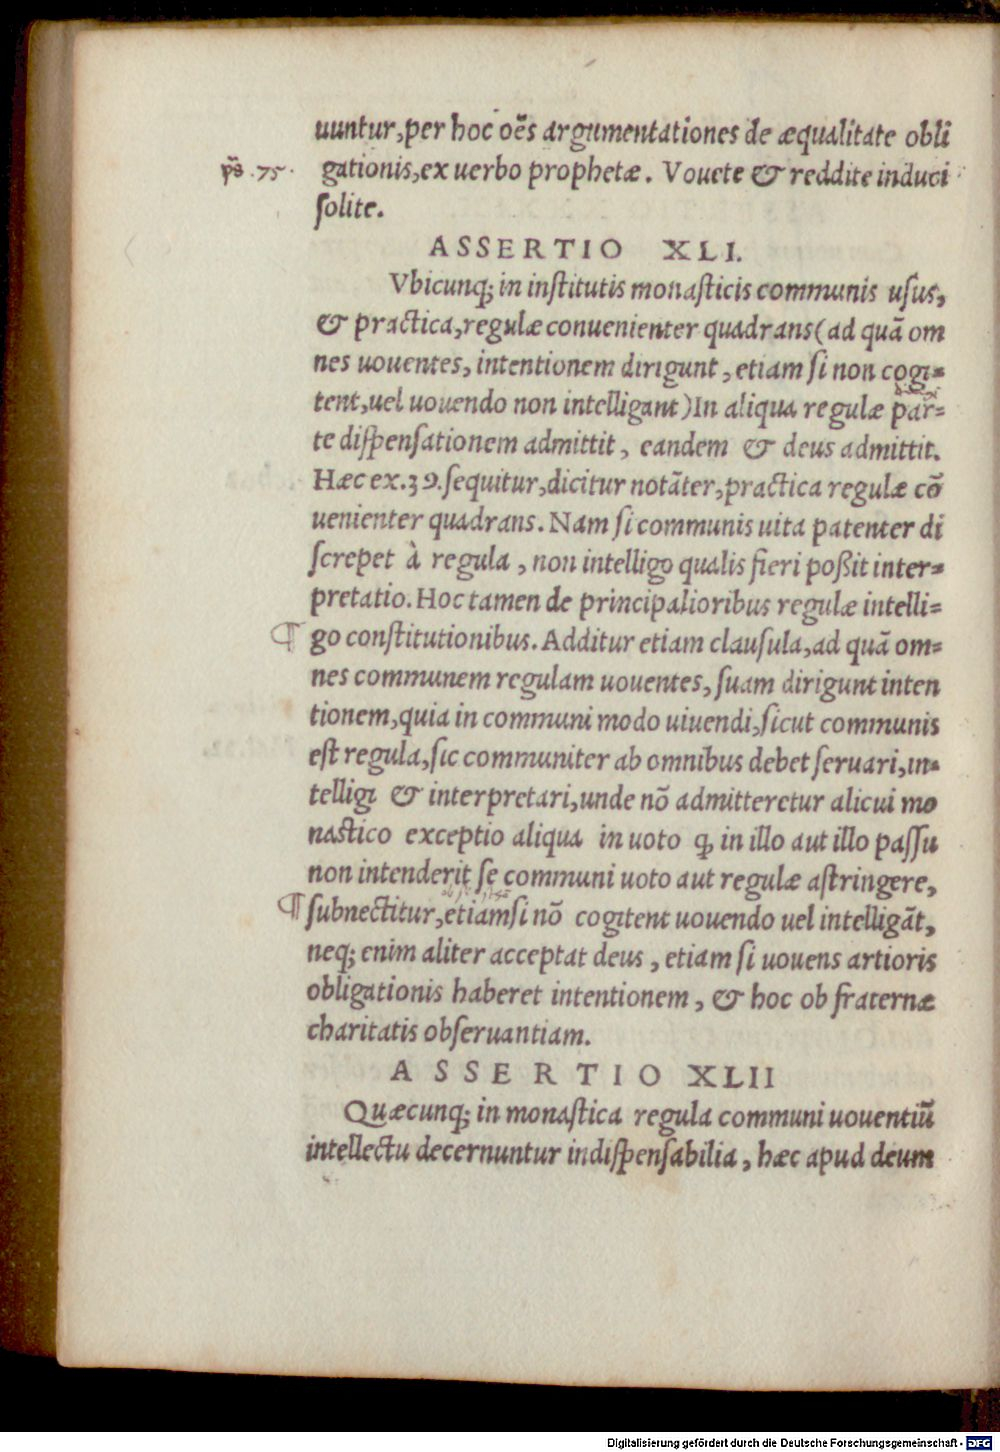 uuntur,per hoc oẽs argumentationes de æqualitate obli
p̃s .75. gationis,ex uerbo prophetæ. Vouete & reddite induci
ſolite.
ASSERTIO XLI.
Vbicunq; in inſtitutis monaſticis communis uſus,
& practica,regulæ conuenienter quadrans(ad quã om
nes uouentes, intentionem dirigunt, etiam ſi non cogi=
tent,uel uouendo non intelligant)In aliqua regulæ par=
te diſpenſationem admittit, eandem & deus admittit.
Hæc ex.39.ſequitur,dicitur notãter,practica regulæ cõ
uenienter quadrans. Nam ſi communis uita patenter di
ſcrepet à regula, non intelligo qualis fieri poßit inter=
pretatio. Hoc tamen de principalioribus regulæ intelli=
¶ go conſtitutionibus. Additur etiam clauſula,ad quã om=
nes communem regulam uouentes, ſuam dirigunt inten
tionem,quia in communi modo uiuendi,ſicut communis
eſt regula,ſic communiter ab omnibus debet ſeruari,in=
telligi & interpretari,unde nõ admitteretur alicui mo
naſtico exceptio aliqua in uoto q; in illo aut illo paſſu
non intenderit ſe communi uoto aut regulæ aſtringere,
¶ ſubnectitur,etiamſi nõ cogitent uouendo uel intelligãt,
neq; enim aliter acceptat deus, etiam ſi uouens artioris
obligationis haberet intentionem, & hoc ob fraternæ
charitatis obſeruantiam.
ASSERTIO XLII
Quæcunq; in monaſtica regula communi uouentiũ
intellectu decernuntur indiſpenſabilia, hæc apud deum
Digitalisierung gefördert durch die Deutsche Forschungsgemeinschaft - DFG